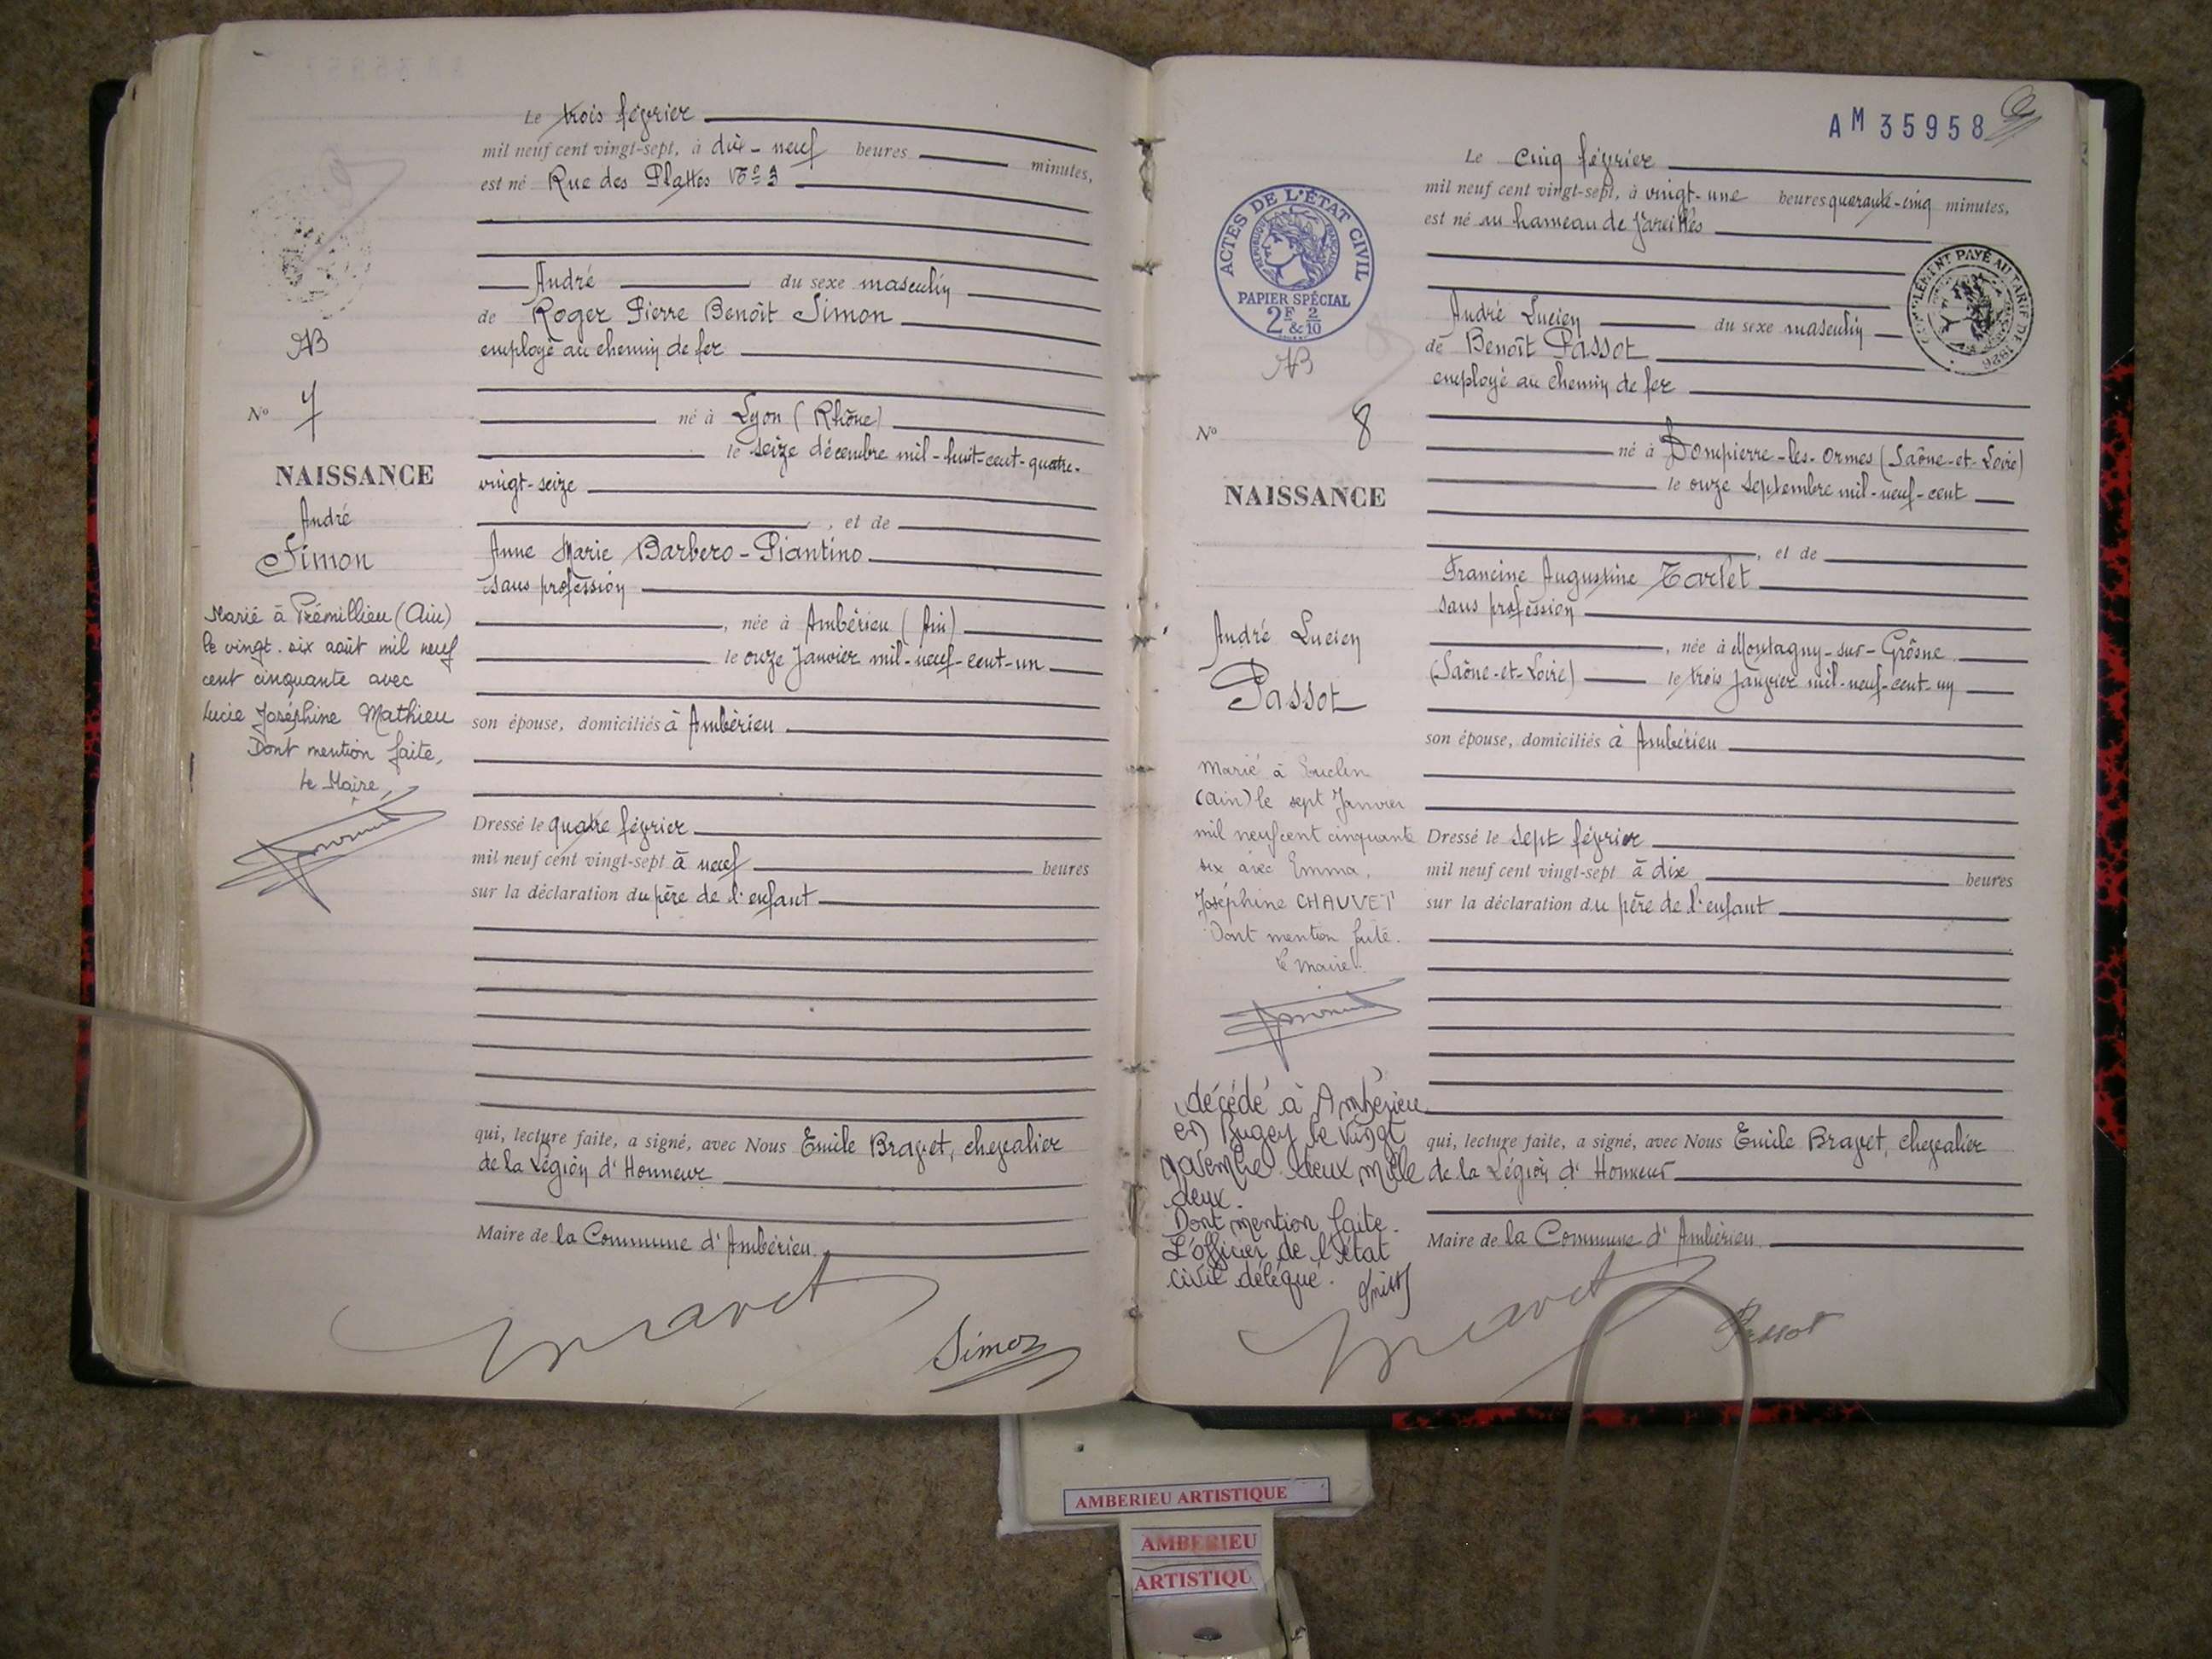 Le trois février
mil neuf cent vingt-sept, à dix-neuf heures minutes,
est né Rue des Plattes No 3
André du sexe masculin
de Roger Pierre Benoît Simon
employé au chemin de fer
né à Lyon (Rhône)
le seize décembre mil-huit-cent-quatre-
vingt-seize
, et de
Anne Marie Barbero-Piantino
sans profession
, née à Ambérieu (Ain)
le onze Janvier mil-neuf-cent-un
son épouse, domiciliés à Ambérieu
Dressé le quatre février
mil neuf cent vingt-sept à neuf heures
sur la déclaration du père de l'enfant
qui, lecture faite, a signé, avec Nous Emile Bravet, chevalier
de la Légion d'Honneur
Maire de la Commune d'Ambérieu
Bravet
Simon
AB
No 7
NAISSANCE
André
Simon
Marié à Prémillieu (Ain)
le vingt-six août mil neuf
cent cinquante avec
Lucie Joséphine Mathieu
Dont mention faite,
Le Maire,
AM 35958
Le cinq février
mil neuf cent vingt-sept, à vingt-une heures quarante-cinq minutes,
est né au hameau de Vareilles
André Lucien du sexe masculin
de Benoît Passot
employé au chemin de fer
né à Dompierre-les-Ormes (Saône-et-Loire)
le onze Septembre mil-neuf-cent
, et de
Francine Augustine Tarlet
sans profession
, née à Montagny-sur-Grôsne
(Saône-et-Loire) le trois Janvier mil-neuf-cent-un
son épouse, domiciliés à Ambérieu
Dressé le sept février
mil neuf cent vingt-sept à dix heures
sur la déclaration du père de l'enfant
qui, lecture faite, a signé, avec Nous Emile Bravet, chevalier
de la Légion d'Honneur
Maire de la Commune d'Ambérieu
Bravet
Passot
ACTES DE L'ÉTAT CIVIL
RÉPUBLIQUE FRANÇAISE
PAPIER SPÉCIAL
2F & 2/10
COMPLÉMENT PAYÉ AU TARIF DE 1926
AB
No 8
NAISSANCE
André Lucien
Passot
Marié à
(Ain) le sept Janvier
mil neuf cent cinquante
six avec Emma,
Joséphine CHAUVET
Dont mention faite.
le Maire.
décédé à Ambérieu
en Bugey le vingt
novembre deux mille
deux.
Dont mention faite.
L'officier de l'état
civil délégué.
AMBERIEU ARTISTIQUE
AMBERIEU
ARTISTIQU